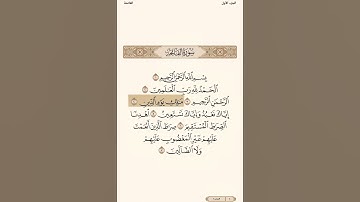 الجزء الأول الفاتحة
سورة الفاتحة
بسم الله الرحمن الرحيم ١
الحمد لله رب العالمين ٢
الرحمن الرحيم ٣ مالك يوم الدين ٤
إياك نعبد وإياك نستعين ٥ اهدنا
الصراط المستقيم ٦ صراط الذين أنعمت
عليهم غير المغضوب عليهم
ولا الضالين ٧